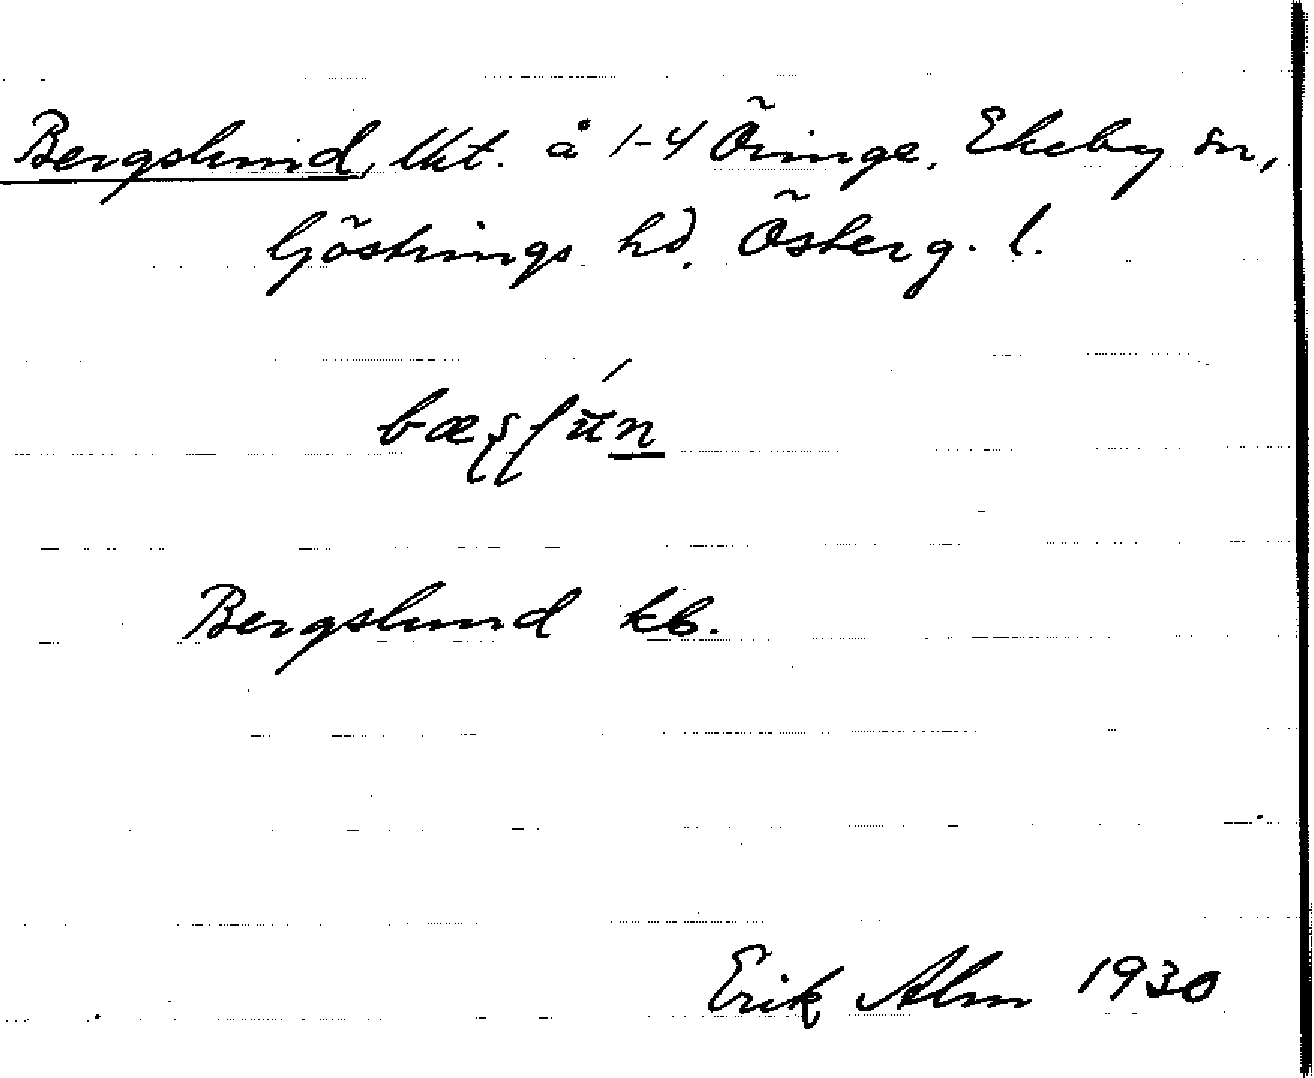 Bergslund, lht. å 1-4 Öringe, Ekeby sn,
Göstrings hd. Österg. l.
Bergslund kb.
Erik Alm 1930